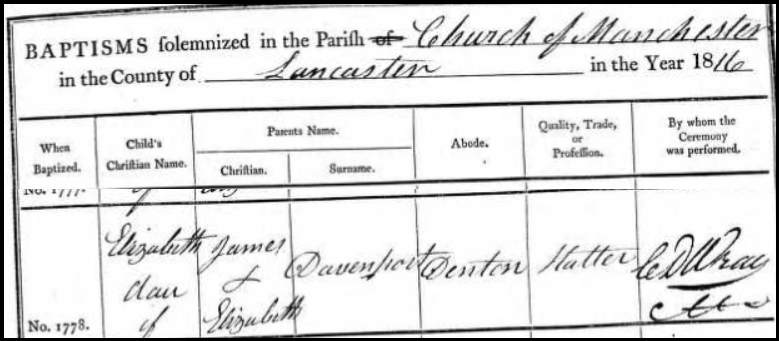 BAPTISMS solemnized in the Parish of Church of Manchester
in the County of Lancaster in the Year 1816
When Baptized. Child's Christian Name. Parents Name. Abode. Quality, Trade, or Profession. By whom the Ceremony was performed.
Christian. Surname.
No. 1777.
of
Elizabeth James Davenport Denton Hatter C D Wray
daur &
No. 1778. of Elizabeth